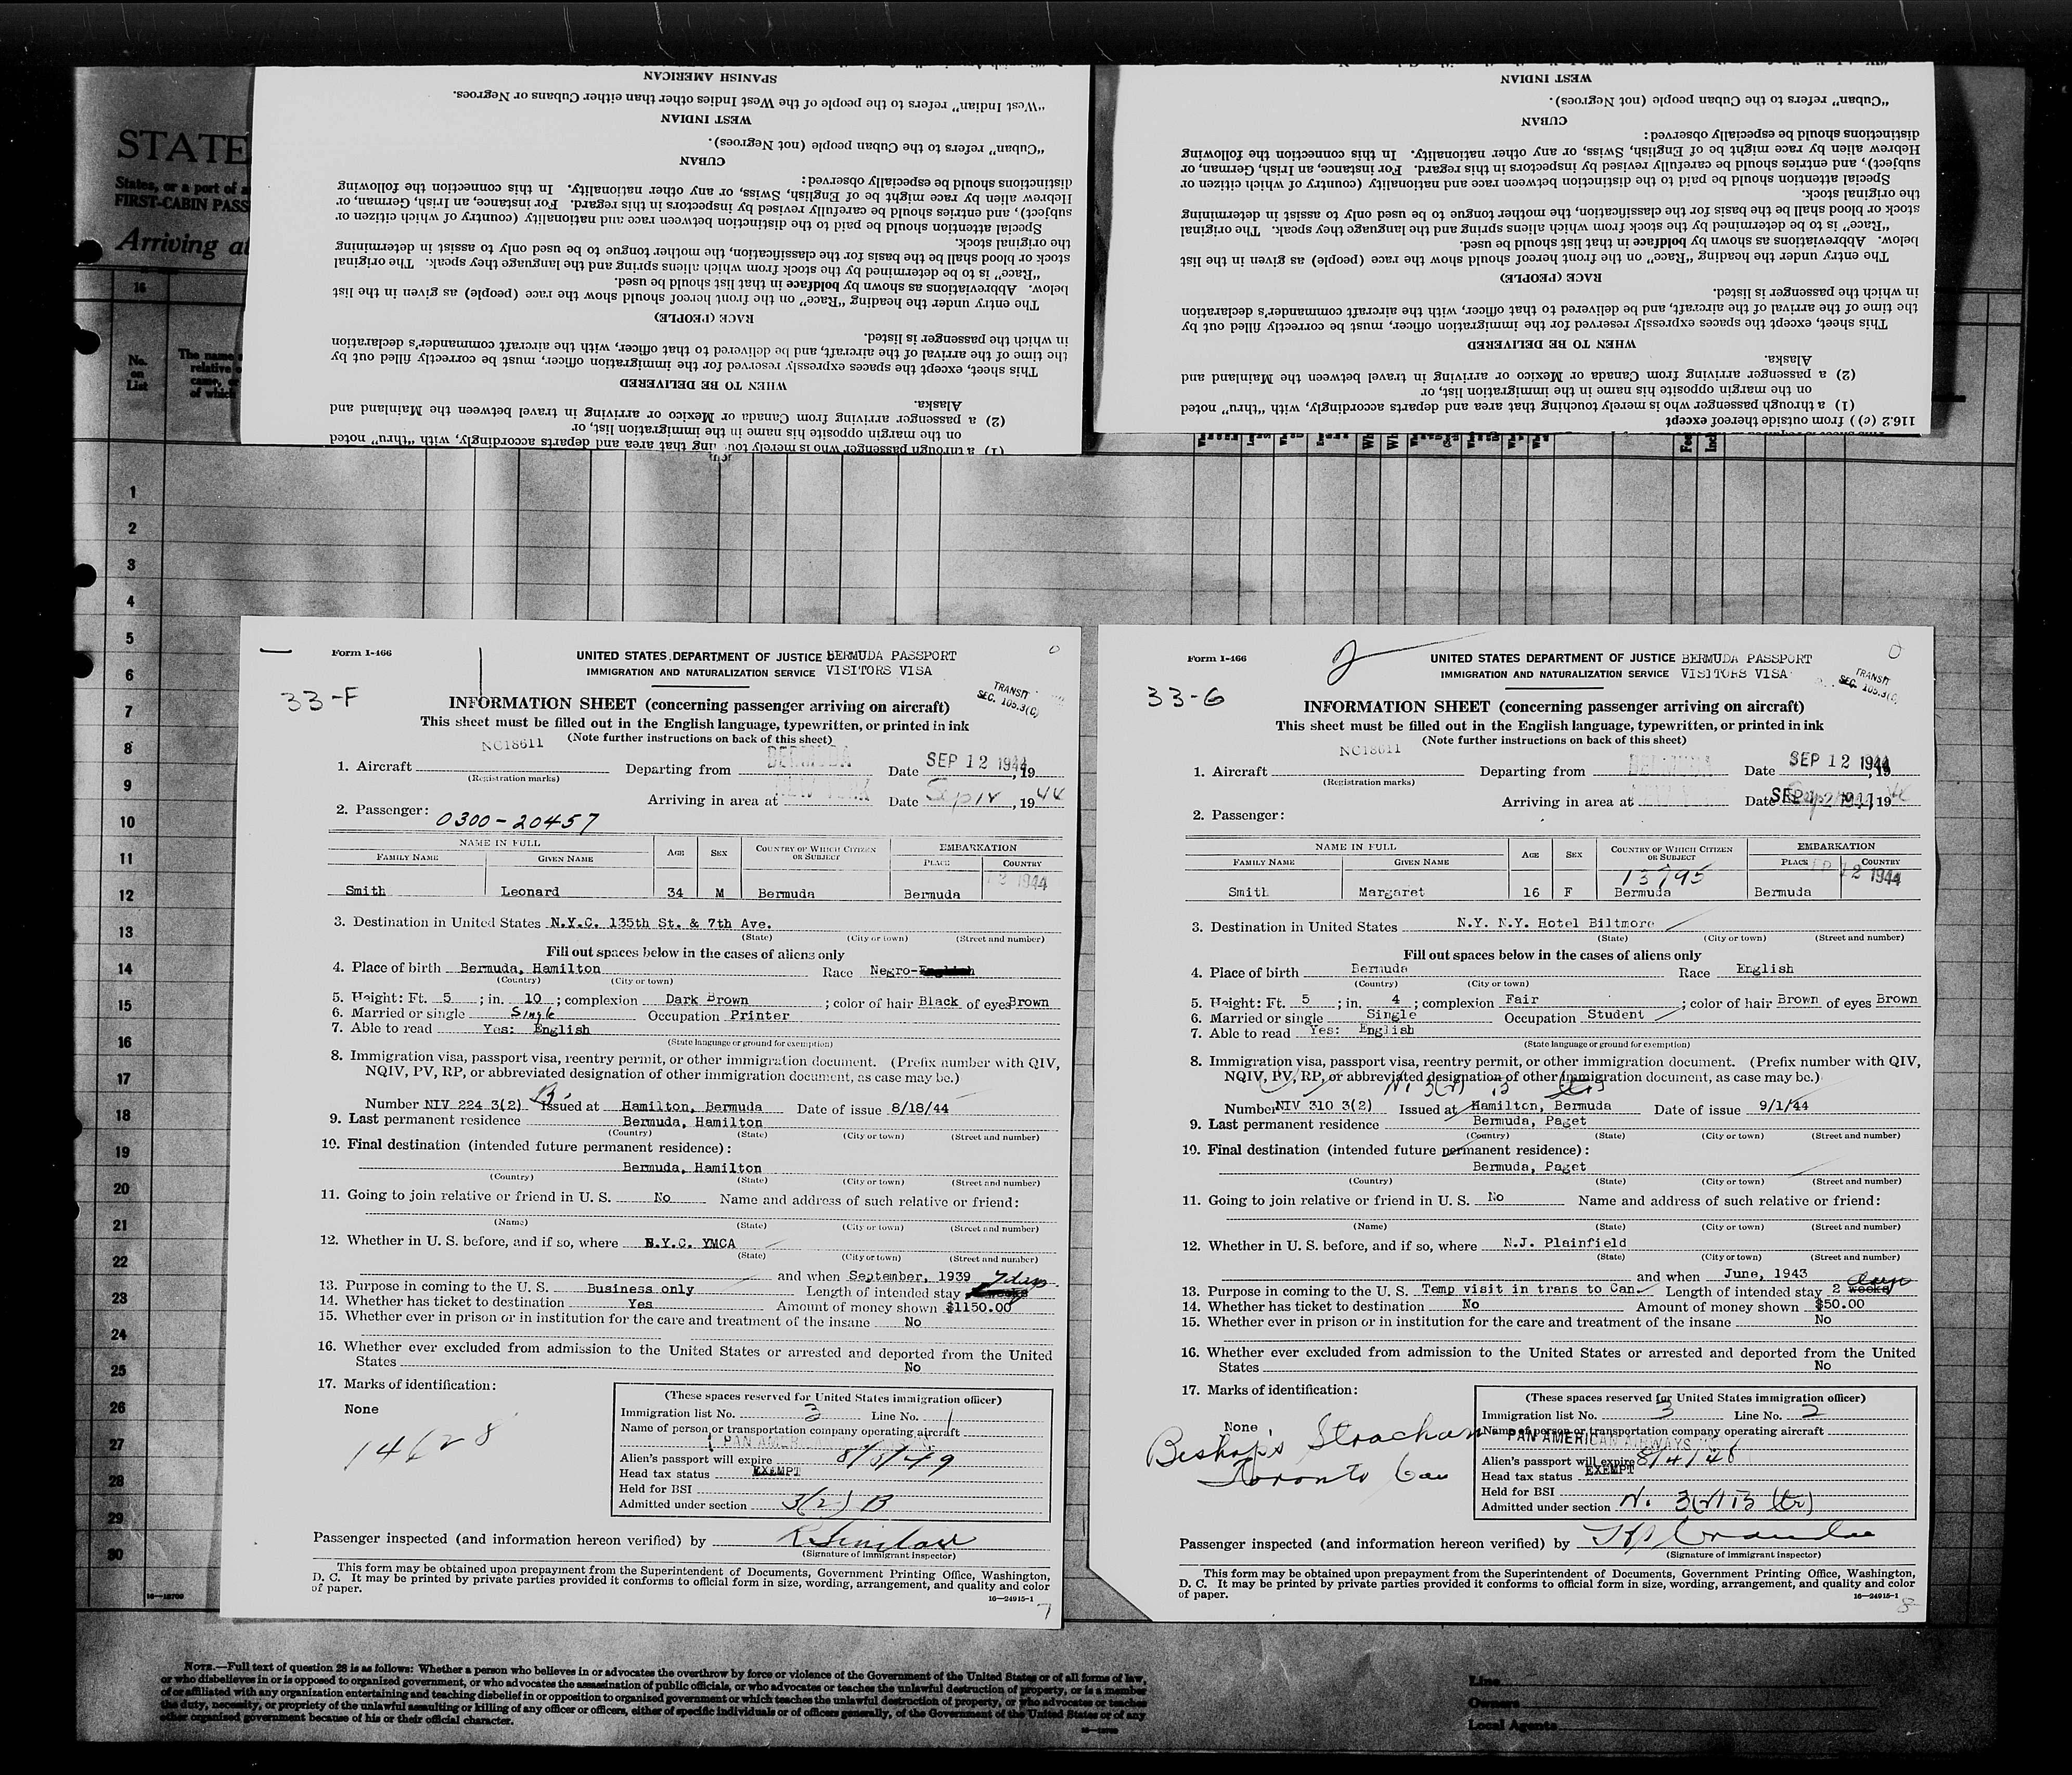 STATE
States, or a port of a
FIRST-CABIN PASS
Arriving at
16
No.
on
List
The name
relative o
came, or
of which
SPANISH AMERICAN
"West Indian" refers to the people of the West Indies other than either Cubans or Negroes.
WEST INDIAN
"Cuban" refers to the Cuban people (not Negroes).
CUBAN
distinctions should be especially observed:
Hebrew alien by race might be of English, Swiss, or any other nationality. In this connection the following
subject), and entries should be carefully revised by inspectors in this regard. For instance, an Irish, German, or
Special attention should be paid to the distinction between race and nationality (country of which citizen or
the original stock.
stock or blood shall be the basis for the classification, the mother tongue to be used only to assist in determining
"Race" is to be determined by the stock from which aliens spring and the language they speak. The original
below. Abbreviations as shown by boldface in that list should be used.
The entry under the heading "Race" on the front hereof should show the race (people) as given in the list
RACE (PEOPLE)
in which the passenger is listed.
the time of the arrival of the aircraft, and be delivered to that officer, with the aircraft commander's declaration
This sheet, except the spaces expressly reserved for the immigration officer, must be correctly filled out by
WHEN TO BE DELIVERED
Alaska.
(2) a passenger arriving from Canada or Mexico or arriving in travel between the Mainland and
on the margin opposite his name in the immigration list, or
(1) a through passenger who is merely touching that area and departs accordingly, with "thru" noted
WEST INDIAN
"Cuban" refers to the Cuban people (not Negroes).
CUBAN
distinctions should be especially observed:
Hebrew alien by race might be of English, Swiss, or any other nationality. In this connection the following
subject), and entries should be carefully revised by inspectors in this regard. For instance, an Irish, German, or
Special attention should be paid to the distinction between race and nationality (country of which citizen or
the original stock.
stock or blood shall be the basis for the classification, the mother tongue to be used only to assist in determining
"Race" is to be determined by the stock from which aliens spring and the language they speak. The original
below. Abbreviations as shown by boldface in that list should be used.
The entry under the heading "Race" on the front hereof should show the race (people) as given in the list
RACE (PEOPLE)
in which the passenger is listed.
the time of the arrival of the aircraft, and be delivered to that officer, with the aircraft commander's declaration
This sheet, except the spaces expressly reserved for the immigration officer, must be correctly filled out by
WHEN TO BE DELIVERED
Alaska.
(2) a passenger arriving from Canada or Mexico or arriving in travel between the Mainland and
on the margin opposite his name in the immigration list, or
(1) a through passenger who is merely touching that area and departs accordingly, with "thru" noted
116.2 (c) ) from outside thereof except
1
2
3
4
5
6
7
8
9
10
11
12
13
14
15
16
17
18
19
20
21
22
23
24
25
26
27
28
29
30
Form I-466
UNITED STATES DEPARTMENT OF JUSTICE BERMUDA PASSPORT
IMMIGRATION AND NATURALIZATION SERVICE VISITORS VISA
33-F
TRANSIT
SEC. 105.3(C)
INFORMATION SHEET (concerning passenger arriving on aircraft)
This sheet must be filled out in the English language, typewritten, or printed in ink
(Note further instructions on back of this sheet)
NC18611
1. Aircraft Departing from BERMUDA Date SEP 12 1944, 19
(Registration marks)
Arriving in area at NEW YORK Date Sep 12, 19 44
2. Passenger: 0300-20457
NAME IN FULL AGE SEX COUNTRY OF WHICH CITIZEN OR SUBJECT EMBARKATION
FAMILY NAME GIVEN NAME PLACE COUNTRY
12 1944
Smith Leonard 34 M Bermuda Bermuda
3. Destination in United States N.Y.C. 135th St. & 7th Ave.
(State) (City or town) (Street and number)
Fill out spaces below in the cases of aliens only
4. Place of birth Bermuda, Hamilton Race Negro-English
(Country) (City or town)
5. Height: Ft. 5 ; in. 10 ; complexion Dark Brown ; color of hair Black of eyes Brown
6. Married or single Single Occupation Printer
7. Able to read Yes: English
(State language or ground for exemption)
8. Immigration visa, passport visa, reentry permit, or other immigration document. (Prefix number with QIV,
NQIV, PV, RP, or abbreviated designation of other immigration document, as case may be.)
Number NIV 224 3(2) B Issued at Hamilton, Bermuda Date of issue 8/18/44
9. Last permanent residence Bermuda, Hamilton
(Country) (State) (City or town) (Street and number)
10. Final destination (intended future permanent residence):
Bermuda, Hamilton
(Country) (State) (City or town) (Street and number)
11. Going to join relative or friend in U. S. No Name and address of such relative or friend:
(Name) (State) (City or town) (Street and number)
12. Whether in U. S. before, and if so, where N.Y.C. YMCA
(State) (City or town) (Street and number)
and when September, 1939
13. Purpose in coming to the U. S. Business only Length of intended stay 7 days
14. Whether has ticket to destination Yes Amount of money shown $1150.00
15. Whether ever in prison or in institution for the care and treatment of the insane No
16. Whether ever excluded from admission to the United States or arrested and deported from the United
States No
17. Marks of identification:
None
14628
(These spaces reserved for United States immigration officer)
Immigration list No. 3 Line No. 1
Name of person or transportation company operating aircraft
PAN AMERICAN
Alien's passport will expire 8/8/49
Head tax status EXEMPT
Held for BSI
Admitted under section 3(2) B
Passenger inspected (and information hereon verified) by R Sinclair
(Signature of immigrant inspector)
This form may be obtained upon prepayment from the Superintendent of Documents, Government Printing Office, Washington,
D. C. It may be printed by private parties provided it conforms to official form in size, wording, arrangement, and quality and color
of paper.
16—24915-1
7
Form I-466
2
UNITED STATES DEPARTMENT OF JUSTICE BERMUDA PASSPORT
IMMIGRATION AND NATURALIZATION SERVICE VISITORS VISA
33-G
TRANSIT
SEC. 105.3(C)
INFORMATION SHEET (concerning passenger arriving on aircraft)
This sheet must be filled out in the English language, typewritten, or printed in ink
(Note further instructions on back of this sheet)
NC18611
1. Aircraft Departing from BERMUDA Date SEP 12 1944, 19
(Registration marks)
Arriving in area at Date SEP 12 1944, 19
2. Passenger:
NAME IN FULL AGE SEX COUNTRY OF WHICH CITIZEN OR SUBJECT EMBARKATION
FAMILY NAME GIVEN NAME PLACE COUNTRY
13795 12 1944
Smith Margaret 16 F Bermuda Bermuda
3. Destination in United States N.Y. N.Y. Hotel Biltmore
(State) (City or town) (Street and number)
Fill out spaces below in the cases of aliens only
4. Place of birth Bermuda Race English
(Country) (City or town)
5. Height: Ft. 5 ; in. 4 ; complexion Fair ; color of hair Brown of eyes Brown
6. Married or single Single Occupation Student
7. Able to read Yes: English
(State language or ground for exemption)
8. Immigration visa, passport visa, reentry permit, or other immigration document. (Prefix number with QIV,
NQIV, PV, RP, or abbreviated designation of other immigration document, as case may be.)
Number NIV 310 3(2) Issued at Hamilton, Bermuda Date of issue 9/1/44
9. Last permanent residence Bermuda, Paget
(Country) (State) (City or town) (Street and number)
10. Final destination (intended future permanent residence):
Bermuda, Paget
(Country) (State) (City or town) (Street and number)
11. Going to join relative or friend in U. S. No Name and address of such relative or friend:
(Name) (State) (City or town) (Street and number)
12. Whether in U. S. before, and if so, where N.J. Plainfield
(State) (City or town) (Street and number)
and when June, 1943
13. Purpose in coming to the U. S. Temp visit in trans to Can. Length of intended stay 2 weeks days
14. Whether has ticket to destination No Amount of money shown $50.00
15. Whether ever in prison or in institution for the care and treatment of the insane No
16. Whether ever excluded from admission to the United States or arrested and deported from the United
States No
17. Marks of identification:
None
Bishop's Strachan
Toronto Can
(These spaces reserved for United States immigration officer)
Immigration list No. 3 Line No. 2
Name of person or transportation company operating aircraft
PAN AMERICAN AIRWAYS
Alien's passport will expire 8/4/48
Head tax status EXEMPT
Held for BSI
Admitted under section N. 3(2) B (tr)
Passenger inspected (and information hereon verified) by
(Signature of immigrant inspector)
This form may be obtained upon prepayment from the Superintendent of Documents, Government Printing Office, Washington,
D. C. It may be printed by private parties provided it conforms to official form in size, wording, arrangement, and quality and color
of paper.
16—24915-1
8
16—18700
NOTE.—Full text of question 28 is as follows: Whether a person who believes in or advocates the overthrow by force or violence of the Government of the United States or of all forms of law,
or who disbelieves in or is opposed to organized government, or who advocates the assassination of public officials, or who advocates or teaches the unlawful destruction of property, or is a member
of or affiliated with any organization entertaining and teaching disbelief in or opposition to organized government or which teaches the unlawful destruction of property, or who advocates or teaches
the duty, necessity, or propriety of the unlawful assaulting or killing of any officer or officers, either of specific individuals or of officers generally, of the Government of the United States or of any
other organized government because of his or their official character.
Line
Owners
Local Agents